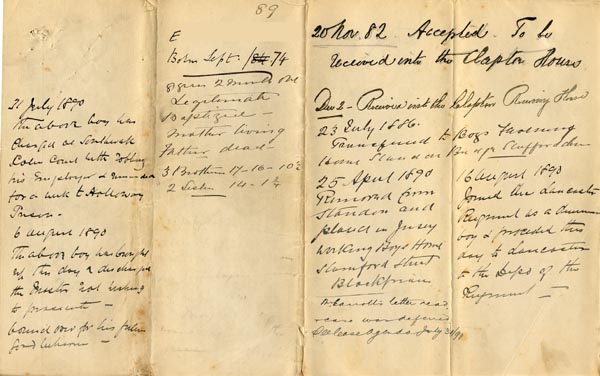 89
31 July 1890
The above boy was
charged at Southwark
Police Court with robbing
his Employer & remanded
for a week to Holloway
Prison.
6 August 1890
The above boy was brought
up this day & discharged
the Master not wishing
to prosecute
bound over for his future
good behaviour
E
Born Sept. 74
8 years 2 months old
Legitimate
Baptized
Mother living
Father dead
3 Brothers 17 - 16 - 10½
2 Sisters 14 - 1¾
20 Nov. 82 Accepted. To be
received into the Clapton House
Dec 2 - Received into the Clapton Receiving Home
23 July 1886.
Transferred to Boys Farming
Home Standon Bridge Staffordshire
25 April 1890
Removed from
Standon and
placed in
Working Boys Home
Stamford Street
Blackfriars
letter read
case was deferred
Case Agenda July 21/91
6 August 1890
Joined the Lancaster
Regiment as a drummer
boy & proceeded this
day to Lancaster
to the Depot of the
Regiment